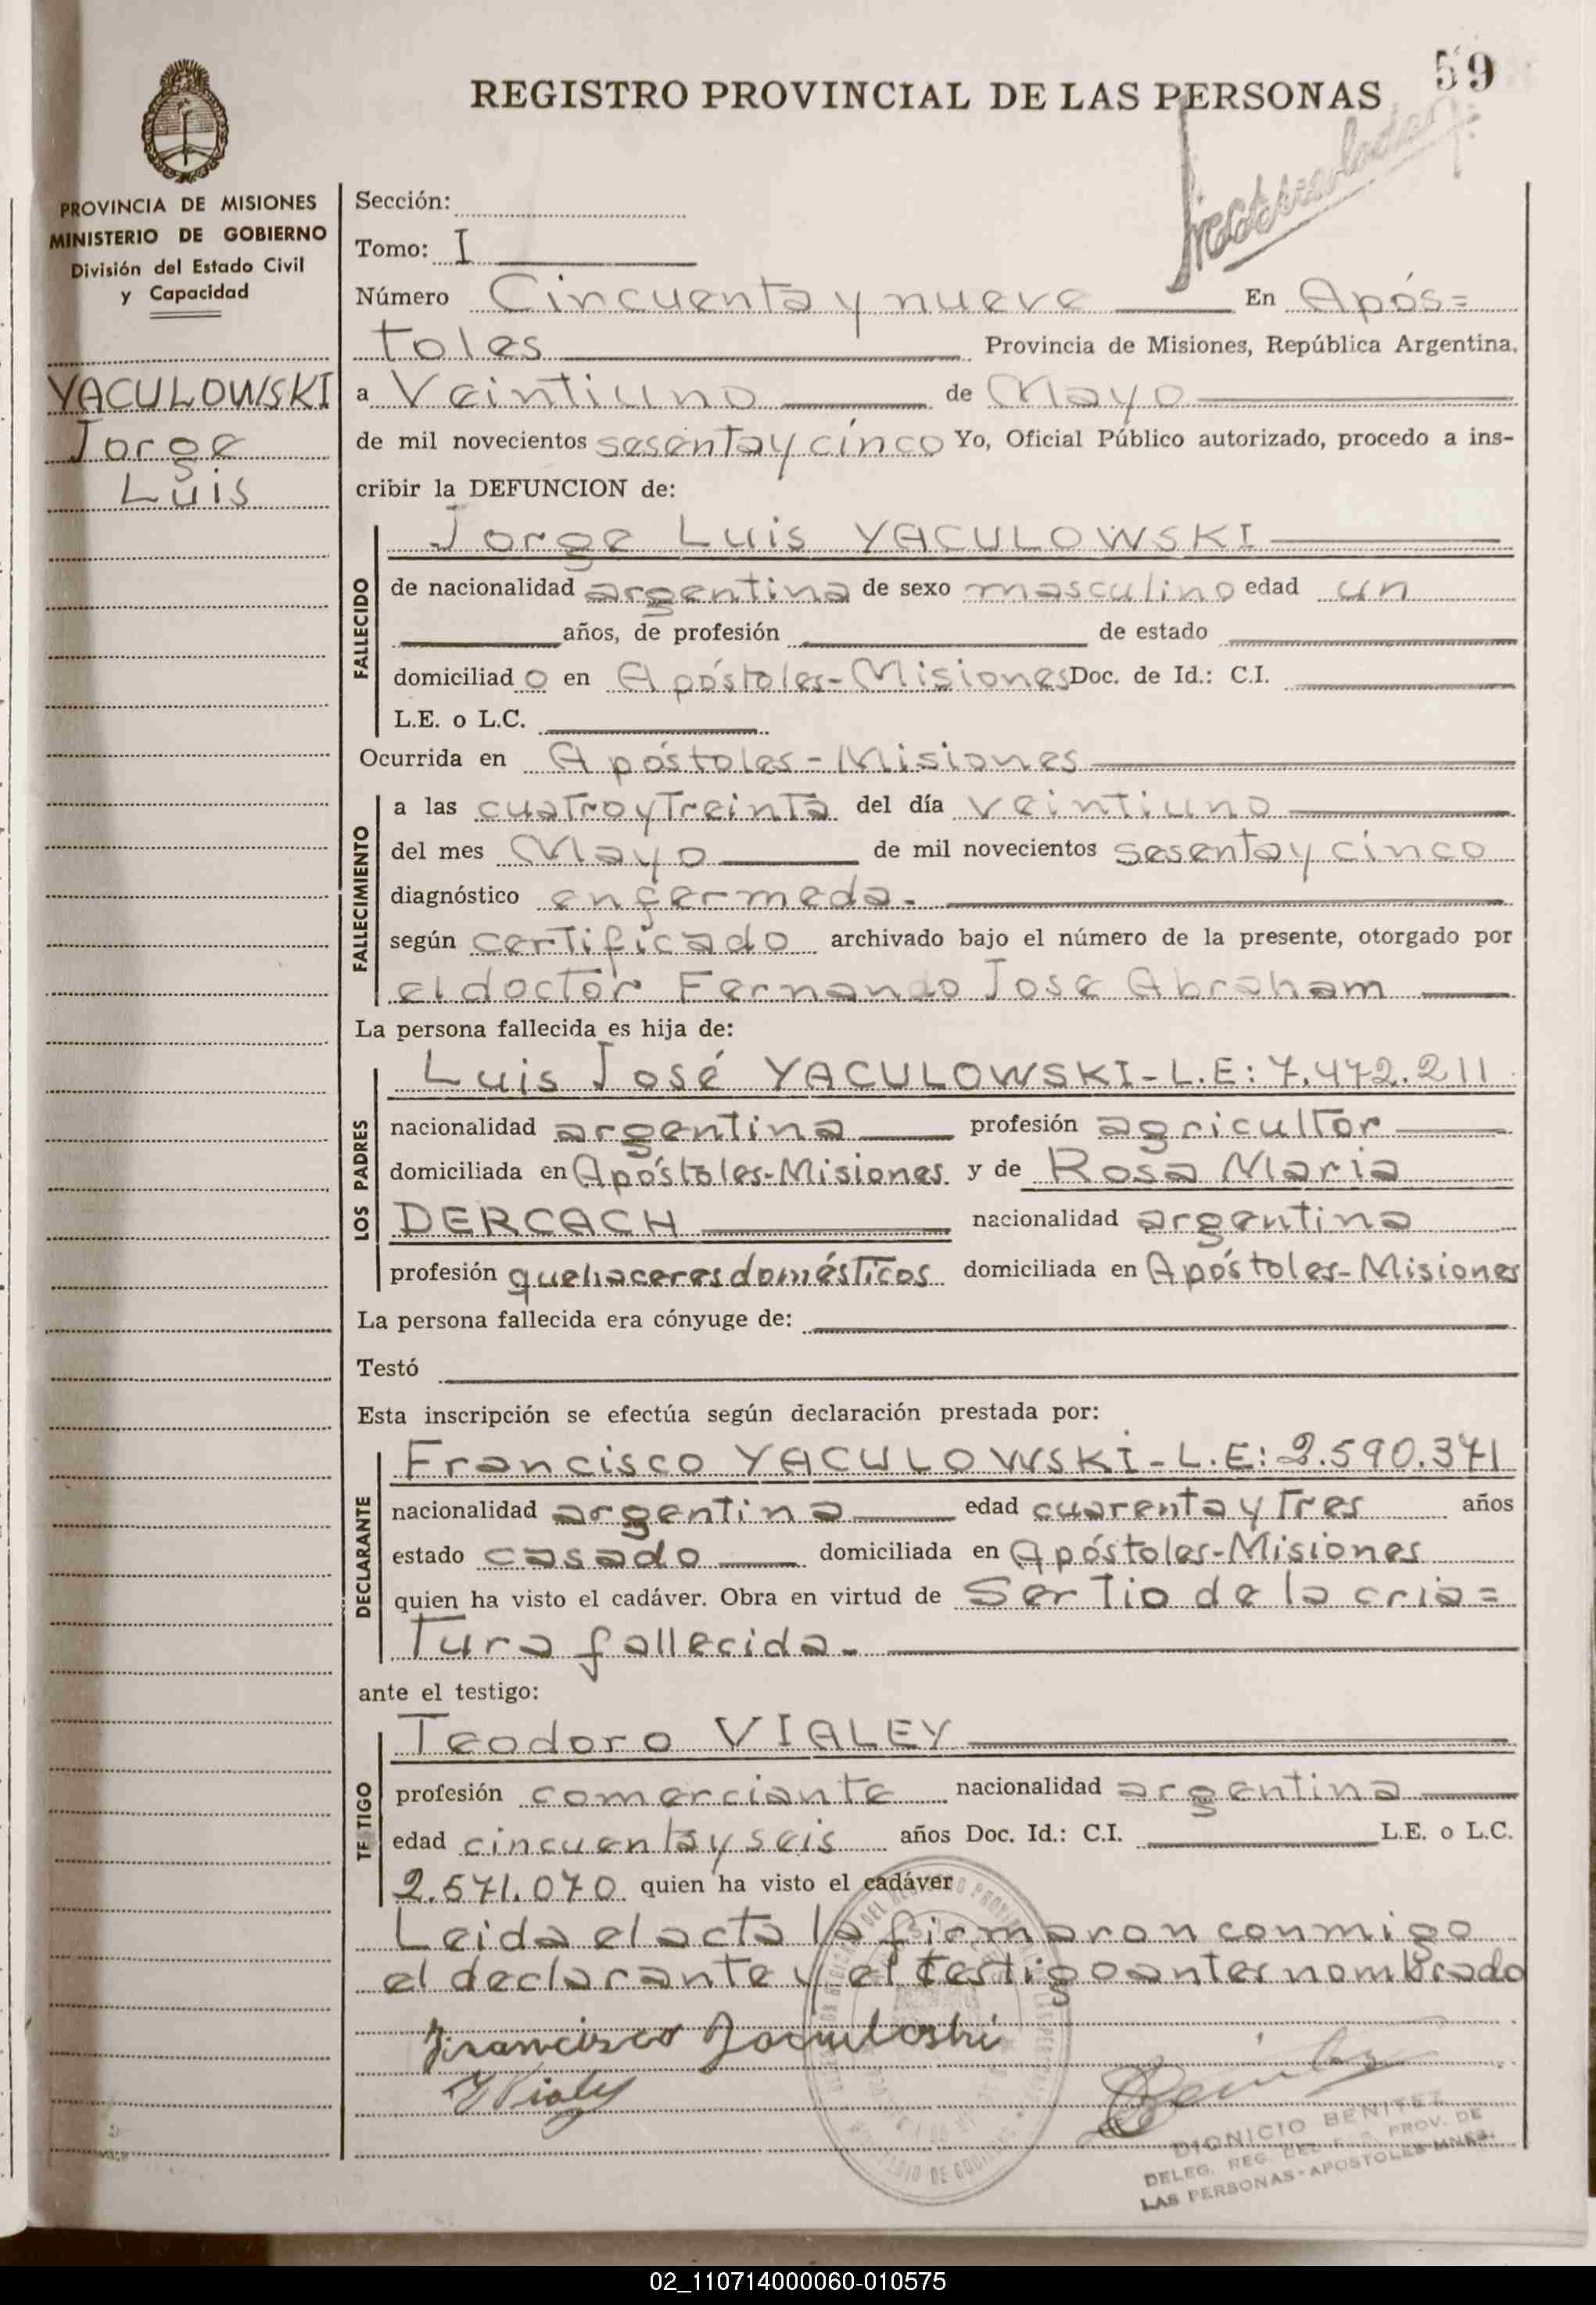 59
REGISTRO PROVINCIAL DE LAS PERSONAS
PROVINCIA DE MISIONES
MINISTERIO DE GOBIERNO
División del Estado Civil
y Capacidad
YACULOWSKI
Jorge
Luis
Sección:
Tomo: I
Número Cincuenta y nueve En Após=
toles Provincia de Misiones, República Argentina,
a Veintiuno de Mayo
de mil novecientos sesenta y cinco Yo, Oficial Público autorizado, procedo a ins-
cribir la DEFUNCION de:
FALLECIDO
Jorge Luis YACULOWSKI
de nacionalidad argentina de sexo masculino edad un
años, de profesión de estado
domiciliad o en Apóstoles-Misiones Doc. de Id.: C.I.
L.E. o L.C.
Ocurrida en Apóstoles-Misiones
FALLECIMIENTO
a las cuatro y treinta del día veintiuno
del mes Mayo de mil novecientos sesenta y cinco
diagnóstico enfermeda.
según certificado archivado bajo el número de la presente, otorgado por
el doctor Fernando José Abraham
La persona fallecida es hija de:
LOS PADRES
Luis José YACULOWSKI-L.E: 7.472.211
nacionalidad argentina profesión agricultor
domiciliada en Apóstoles-Misiones y de Rosa Maria
DERCACH nacionalidad argentina
profesión quehaceres domésticos domiciliada en Apóstoles-Misiones
La persona fallecida era cónyuge de:
Testó
Esta inscripción se efectúa según declaración prestada por:
DECLARANTE
Francisco YACULOWSKI-L.E: 2.590.371
nacionalidad argentina edad cuarenta y tres años
estado casado domiciliada en Apóstoles-Misiones
quien ha visto el cadáver. Obra en virtud de Ser Tio de la cria=
tura fallecida.
ante el testigo:
TESTIGO
Teodoro VIALEY
profesión comerciante nacionalidad argentina
edad cincuenta y seis años Doc. Id.: C.I. L.E. o L.C.
2.571.070 quien ha visto el cadáver
Leida el acta la firmaron conmigo
el declarante y el testigo antes nombrado
Francisco
DIONICIO BENITEZ
DELEG. REG. PROV. DE
LAS PERSONAS-APOSTOLES-MNES.
02_110714000060-010575